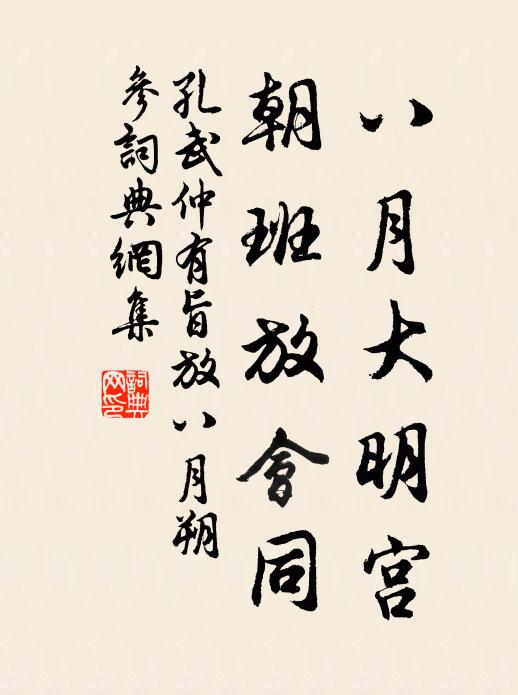 八月大明宮
朝班放會同
孔武仲有旨放八月朔
參詞典網集
詞典网印